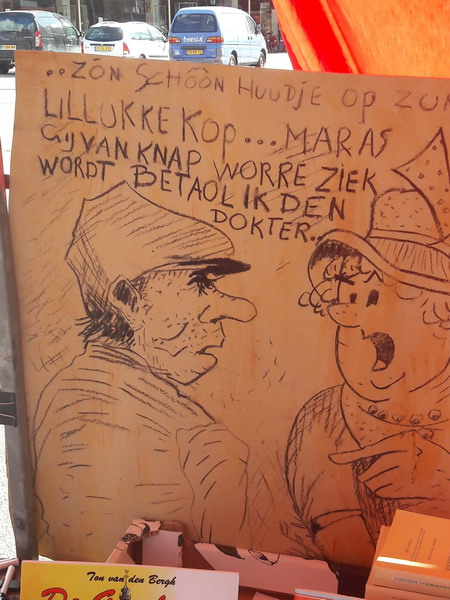 ..ZÓN SCHÖÖN HUUDJE OP ZO
LILLUKKE KOP... MAR AS
GIJ VAN KNAP WORRE ZIEK
WORDT BETAOL IK DEN
DOKTER..
Ton van den Bergh